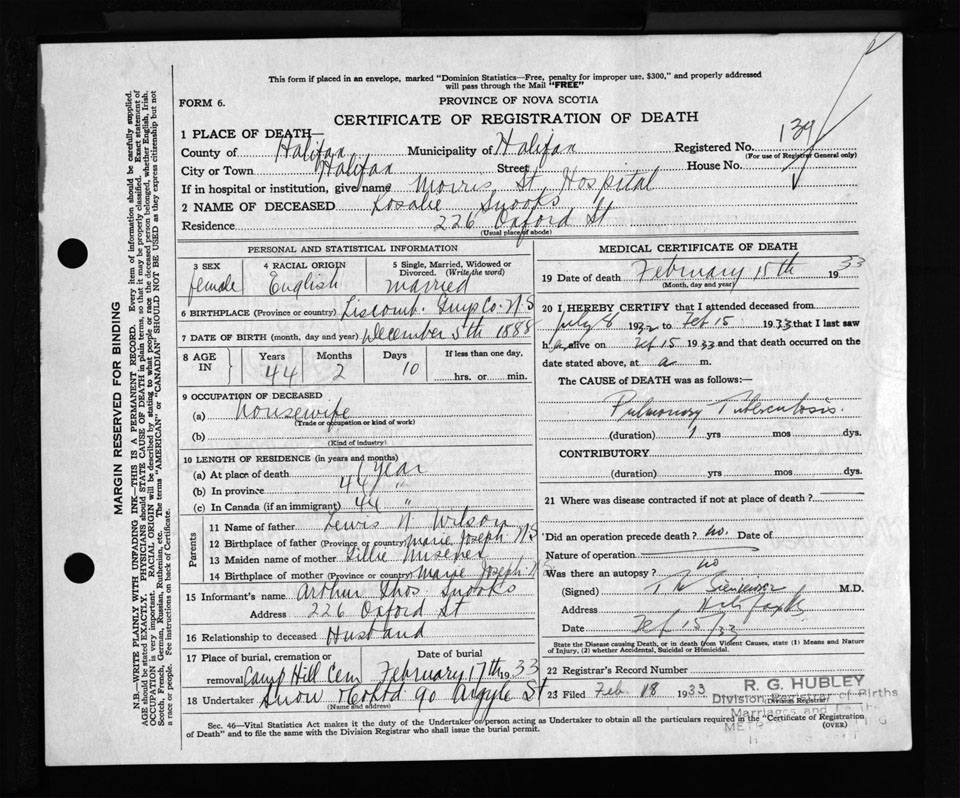 This form if placed in an envelope, marked "Dominion Statistics—Free, penalty for improper use, $300," and properly addressed
will pass through the Mail "FREE"
FORM 6.
PROVINCE OF NOVA SCOTIA
CERTIFICATE OF REGISTRATION OF DEATH
1 PLACE OF DEATH—
County of Halifax Municipality of Halifax Registered No. 139
(For use of Registrar General only)
City or Town Halifax Street House No.
If in hospital or institution, give name Morris St. Hospital
2 NAME OF DECEASED Rosalie Snooks
Residence 226 Oxford St
(Usual place of abode)
PERSONAL AND STATISTICAL INFORMATION
3 SEX 4 RACIAL ORIGIN 5 Single, Married, Widowed or
Divorced. (Write the word)
female English married
6 BIRTHPLACE (Province or country) Liscomb. Guys Co. N.S
7 DATE OF BIRTH (month, day and year) December 5th 1888
8 AGE IN Years Months Days If less than one day,
44 2 10 hrs. or min.
9 OCCUPATION OF DECEASED
(a) Housewife
(Trade or occupation or kind of work)
(b)
(Kind of industry)
10 LENGTH OF RESIDENCE (in years and months)
(a) At place of death 1 year
(b) In province 44 "
(c) In Canada (if an immigrant) 44 "
Parents
11 Name of father Lewis Wilson
12 Birthplace of father (Province or country) Marie Joseph N.S
13 Maiden name of mother Lillie
14 Birthplace of mother (Province or country) Marie Joseph N.S
15 Informant's name Arthur Thos. Snooks
Address 226 Oxford St
16 Relationship to deceased Husband
17 Place of burial, cremation or Date of burial
removal Camp Hill Cem February 17th 1933
18 Undertaker Snow & Co Ltd 90 Argyle St
(Name and address)
MEDICAL CERTIFICATE OF DEATH
19 Date of death February 15th 1933
(Month, day and year)
20 I HEREBY CERTIFY that I attended deceased from
July 8 1932 to Feb 15 1933 that I last saw
h alive on Feb 15 1933 and that death occurred on the
date stated above, at a m.
The CAUSE OF DEATH was as follows:—
Pulmonary Tuberculosis.
(duration) 1 yrs mos dys.
CONTRIBUTORY
(duration) yrs mos dys.
21 Where was disease contracted if not at place of death?
Did an operation precede death? no. Date of
Nature of operation
Was there an autopsy? no
(Signed) M.D.
Address Halifax
Date Feb 15/33
State the Disease causing Death, or in death from Violent Causes, state (1) Means and Nature
of Injury, (2) whether Accidental, Suicidal or Homicidal.
22 Registrar's Record Number
23 Filed Feb. 18 1933
(Division Registrar)
R. G. HUBLEY
Division Registrar of Births
Marriages and
Sec. 46—Vital Statistics Act makes it the duty of the Undertaker or person acting as Undertaker to obtain all the particulars required in the "Certificate of Registration
of Death" and to file the same with the Division Registrar who shall issue the burial permit.
(OVER)
MARGIN RESERVED FOR BINDING
N.B.—WRITE PLAINLY WITH UNFADING INK—THIS IS A PERMANENT RECORD. Every item of information should be carefully supplied.
AGE should be stated EXACTLY. PHYSICIANS should STATE CAUSE OF DEATH in plain terms, so that it may be properly classified. Exact statement of
OCCUPATION is very important. RACIAL ORIGIN will be described by stating to what people or race the deceased person belonged, whether English, Irish,
Scotch, French, German, Russian, Ruthenian, etc. The terms "AMERICAN" or "CANADIAN" SHOULD NOT BE USED as they express citizenship but not
a race or people. See instructions on back of Certificate.